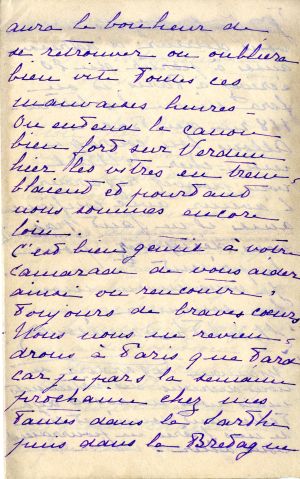 aura le bonheur de
se retrouver on oubliera
bien vite toutes ces
mauvaises heures -
On entend le canon
bien fort sur Verdun
hier les vitres en trem-
blaient et pourtant
nous sommes encore
loin.
C'est bien gentil à votre
camarade de vous aider
ainsi on rencontre
toujours de braves cœurs
Nous nous en revien-
drons à Paris que tard
car je pars la semaine
prochaine chez mes
tantes dans la Sarthe
puis dans la Bretagne